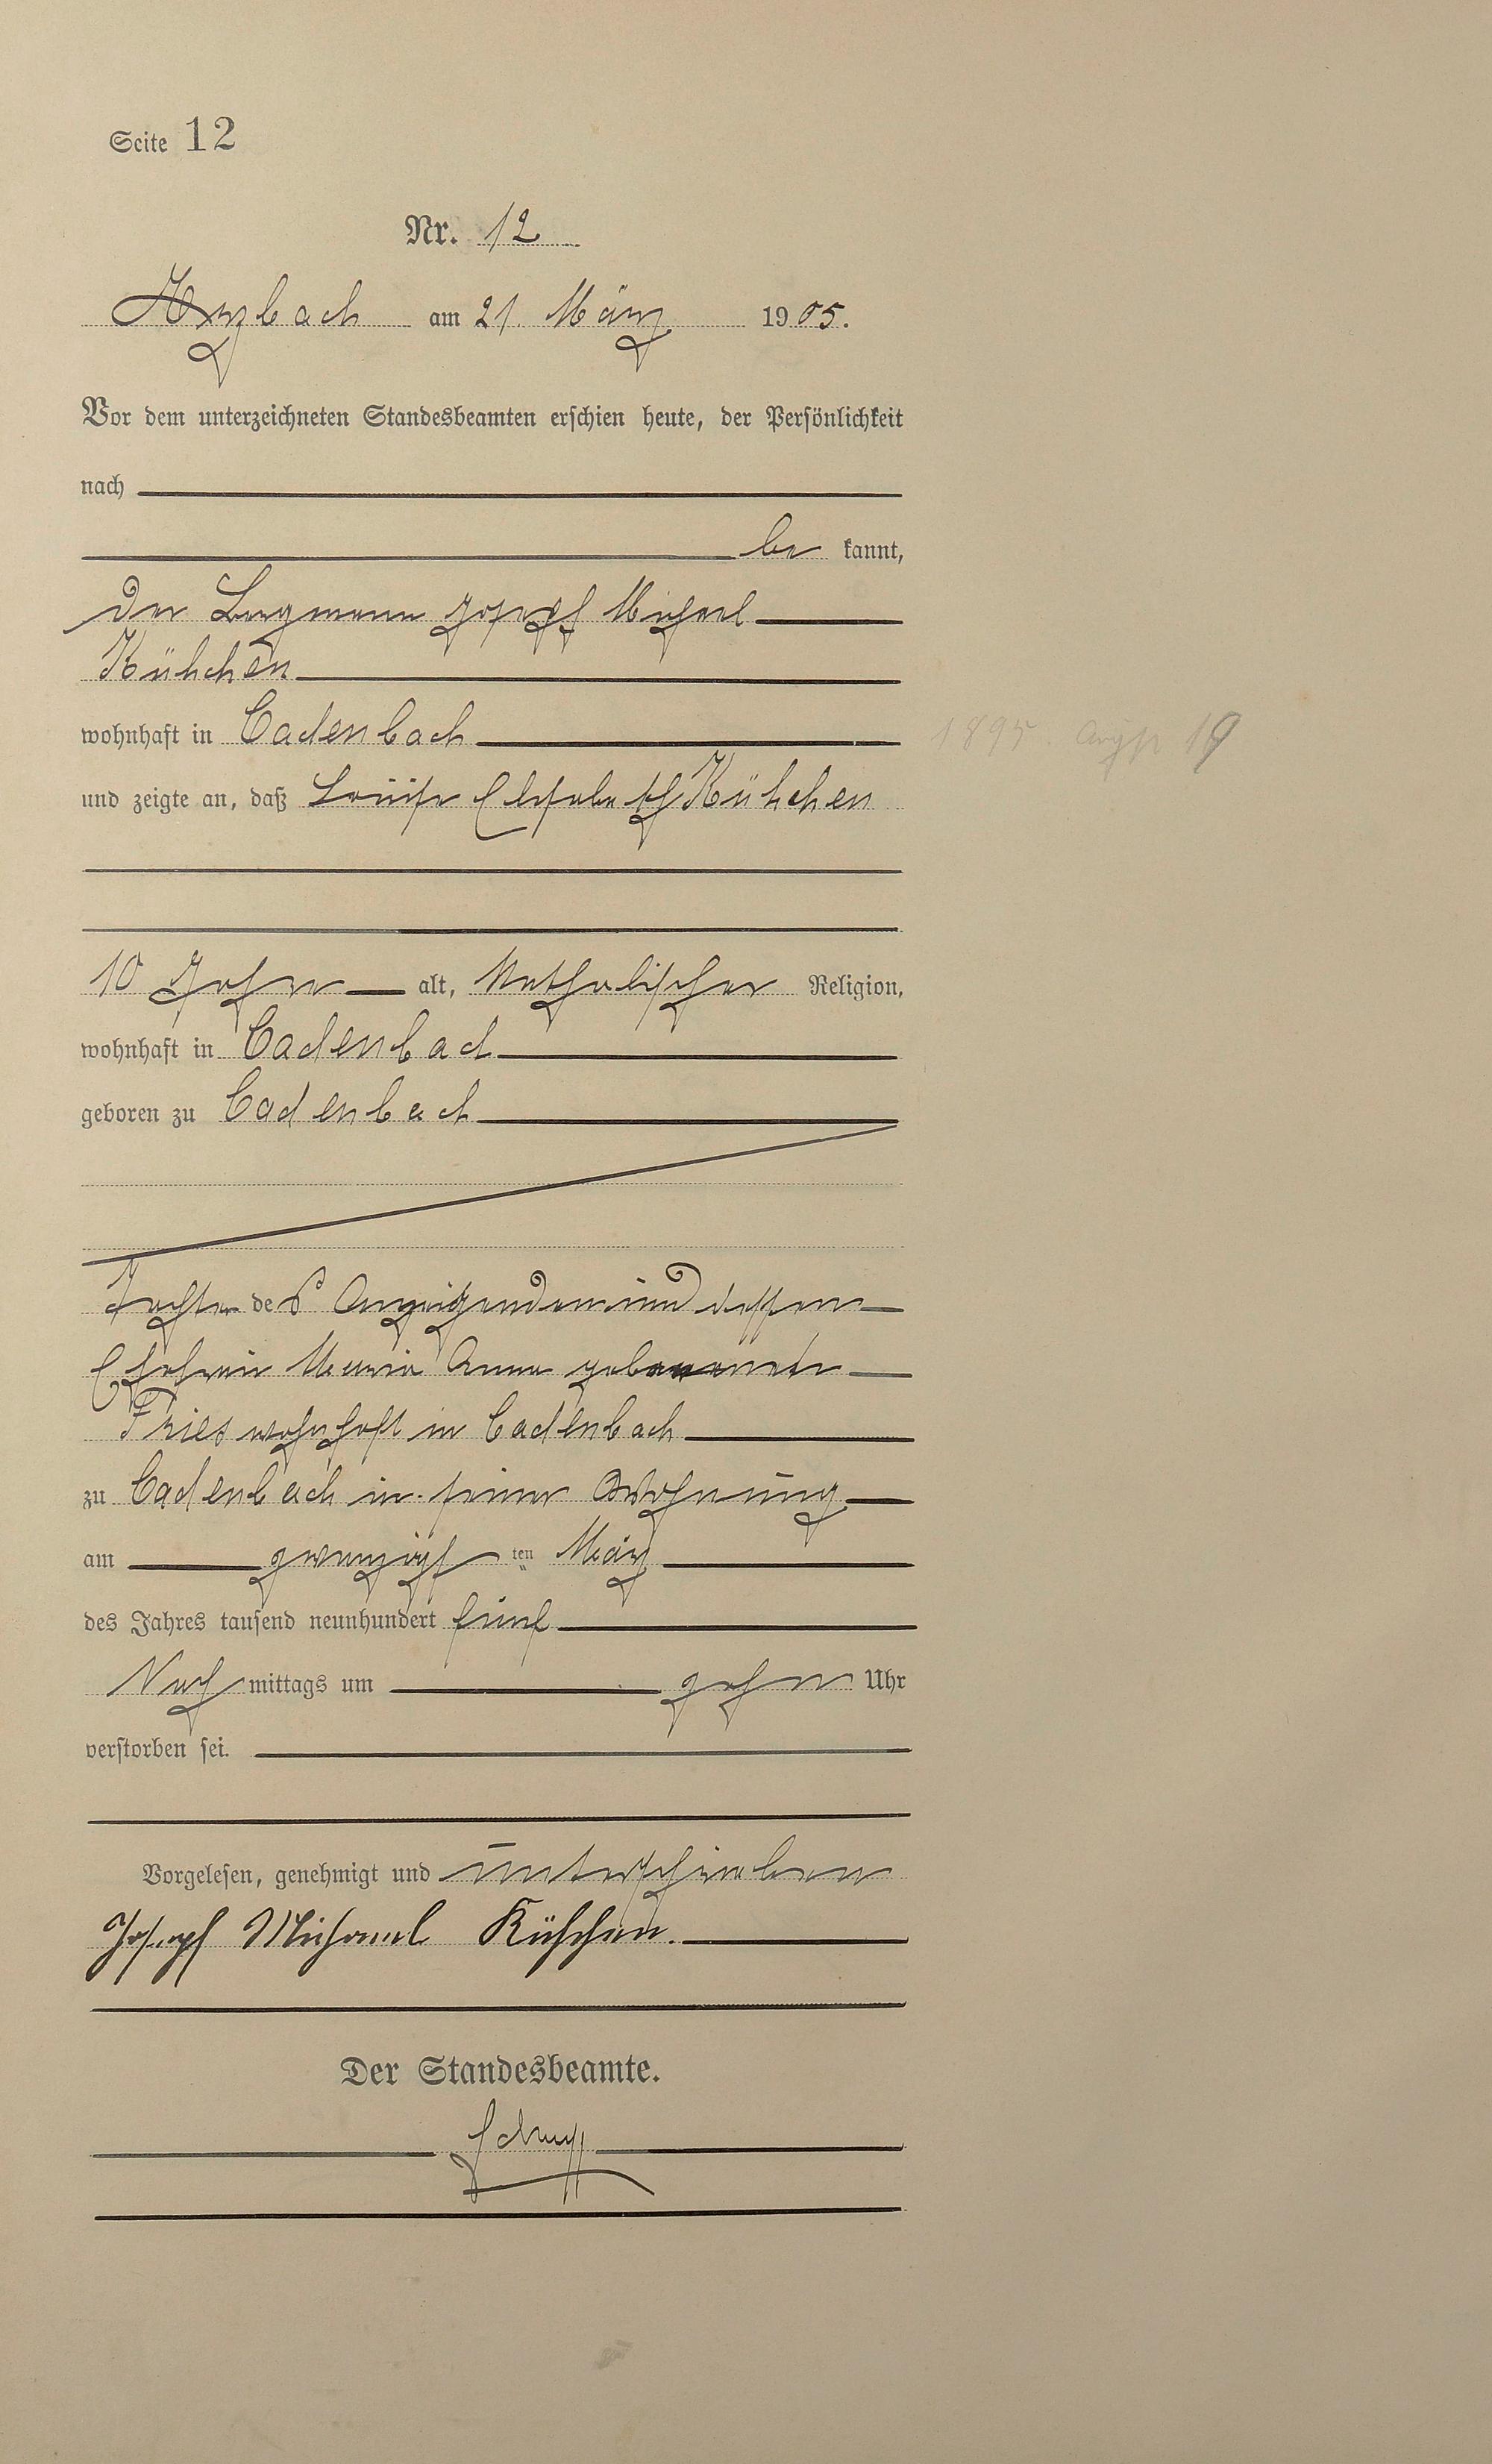 Seite 12
Nr. 12
Arzbach am 21. März 1905.
Vor dem unterzeichneten Standesbeamten erschien heute, der Persönlichkeit
nach
be kannt,
der Bergmann Joseph Michael
Kühchen
wohnhaft in Cadenbach
und zeigte an, daß Louise Elisabeth Kühchen
10 Jahre alt, katholischer Religion,
wohnhaft in Cadenbach
geboren zu Cadenbach
Tochter des Anzeigenden und dessen
Ehefrau Maria Anna geborenen
Fries wohnhaft in Cadenbach
zu Cadenbach in seiner Wohnung
am zwanzigsten März
des Jahres tausend neunhundert fünf
Nachmittags um zehn Uhr
verstorben sei.
Vorgelesen, genehmigt und unterschrieben
Joseph Michael Kühchen.
Der Standesbeamte.
1895 19